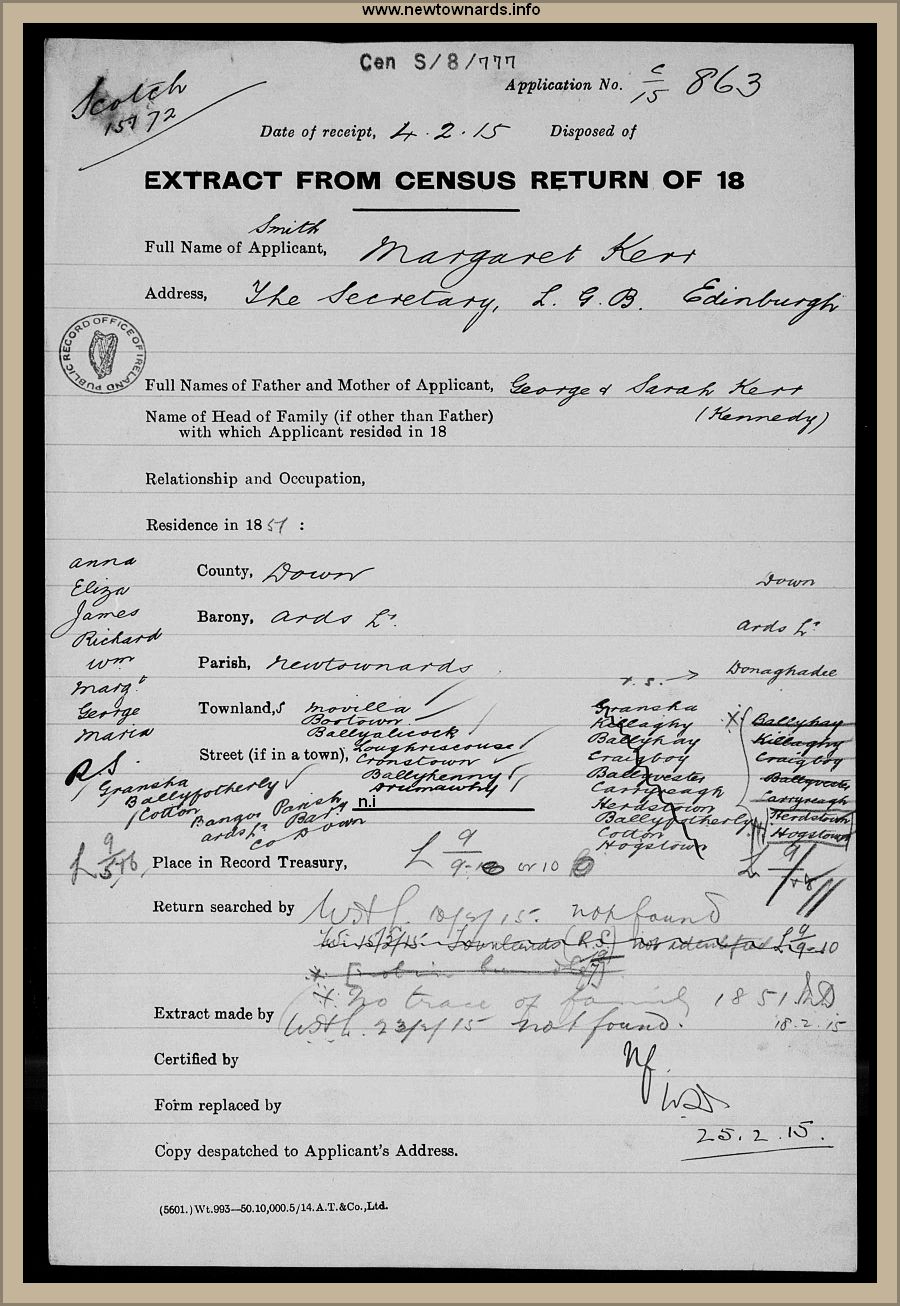 www.newtownards.info
Cen S/8/777
Scotch
1572
Application No. C/15 863
Date of receipt, 4.2.15 Disposed of
EXTRACT FROM CENSUS RETURN OF 18
Smith
Full Name of Applicant, Margaret Kerr
Address, The Secretary, L. G. B. Edinburgh
PUBLIC RECORD OFFICE OF IRELAND
Full Names of Father and Mother of Applicant, George & Sarah Kerr
Name of Head of Family (if other than Father) (Kennedy)
with which Applicant resided in 18
Relationship and Occupation,
Residence in 1851 :
Anna
Eliza
James
Richard
Wm
Marg.t
George
Maria
County, Down Down
Barony, Ards Lr. Ards Lr.
Parish, Newtownards Donaghadee
x. s.
Townland,s Movilla
Bootown
Ballyalicock
Street (if in a town), Loughriescouse
Cronstown
Ballyhenny
Drumawhy
R S.
Gransha
Ballyfotherly
Cotton
Bangor Parish
Ards Lr. Bar'y
Co Down
n.i
Gransha
Killaghy
Ballyhay
Craigboy
Ballyvester
Carryreagh
Herdstown
Ballyfotherly
Cotton
Hogstown
x Ballyhay
Killaghy
Craigboy
Ballyvester
Carryreagh
Herdstown
Hogstown
Place in Record Treasury, L 9/9-10 or 10
Return searched by 10/2/15. not found
Townlands (R.S) 9-10
x No trace of family 1851
18.2.15
Extract made by 23/2/15 not found.
Certified by Nf
Form replaced by
25.2.15.
Copy despatched to Applicant's Address.
(5601.) Wt.993—50.10,000.5/14.A.T.&Co.,Ltd.